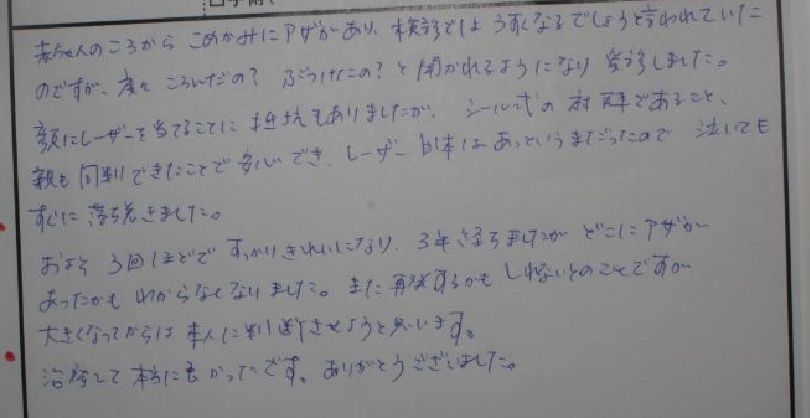 赤ちゃんのころから こめかみにアザがあり、検診ではうすくなるでしょうと言われていた
のですが、度々 ころんだの? ぶつけたの? と聞かれるようになり 受診しました。
顔にレーザーを当てることに 抵抗もありましたが、シール式の 麻酔であること、
親も同割できたことで 安心でき、レーザー自体は あっというまだったので 泣いても
すぐに 落ち着きました。
およそ 3回ほどで すっかりきれいになり、3年経ちましたが どこにアザが
あったかも わからなくなりました。また 再発するかも しれないとのことですが
大きくなってからは 本人に判断させようと思います。
治療して 本当に良かったです。ありがとうございました。